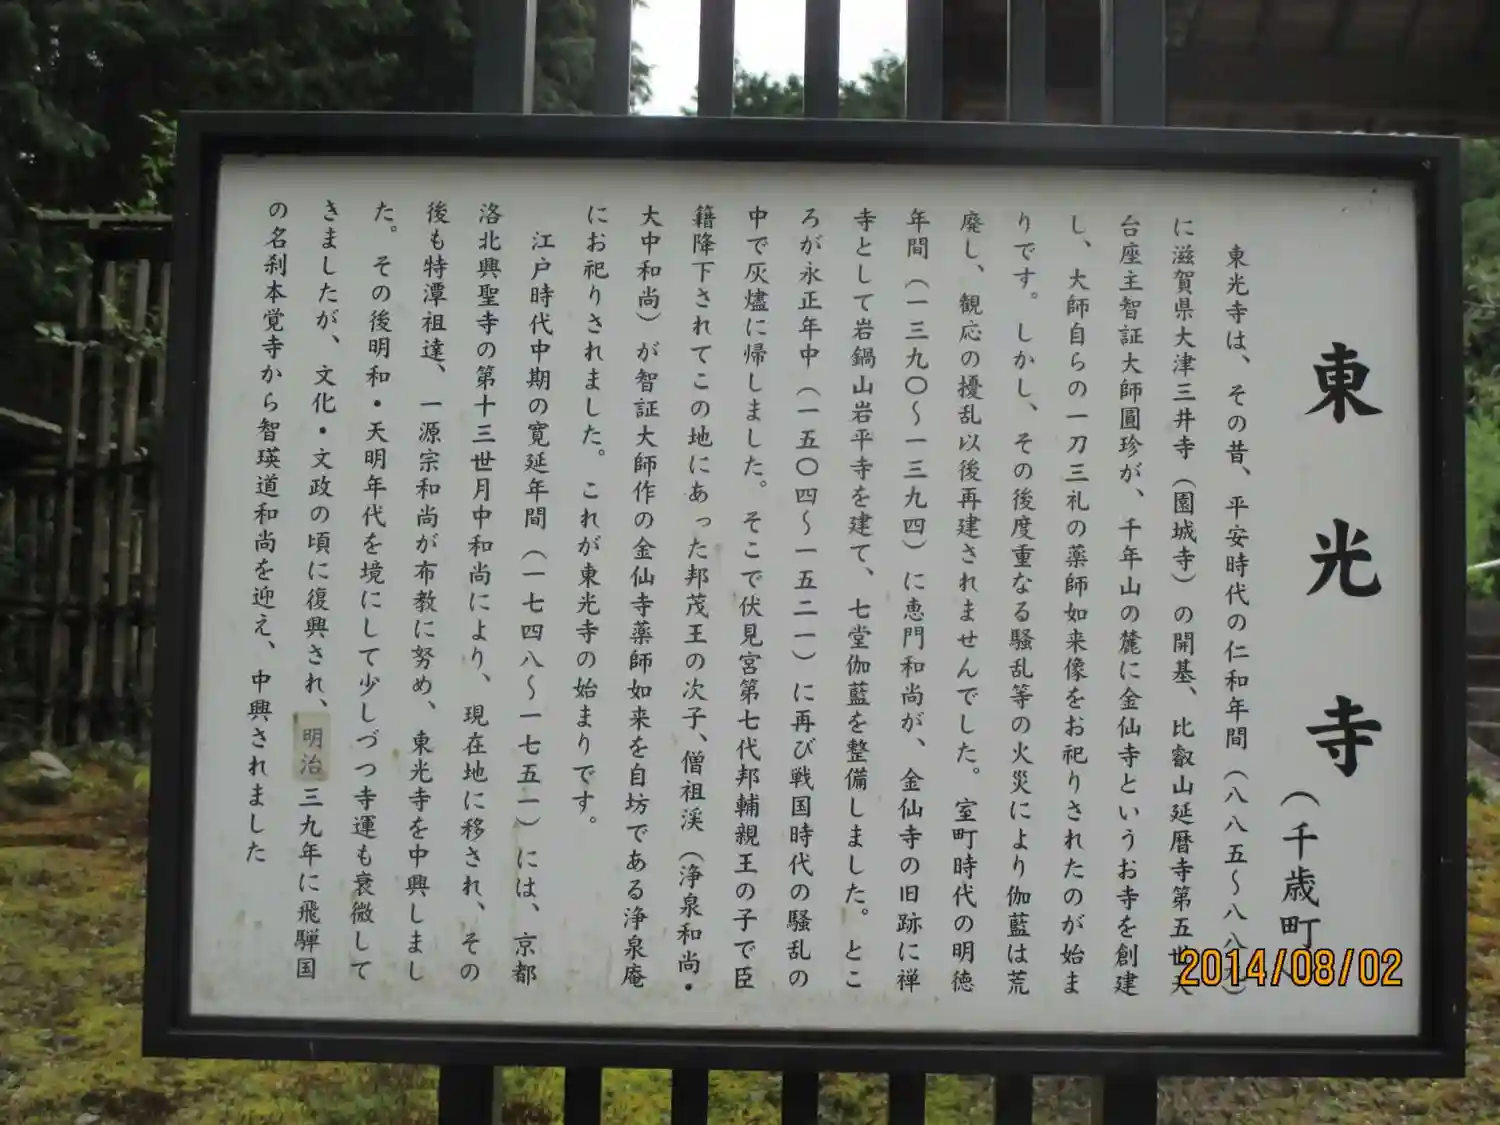 東光寺
（千歳町
東光寺は、その昔、平安時代の仁和年間（八八五〜八八九）
に滋賀県大津三井寺（園城寺）の開基、比叡山延暦寺第五世天
台座主智証大師圓珍が、千年山の麓に金仙寺というお寺を創建
し、大師自らの一刀三礼の薬師如来像をお祀りされたのが始ま
りです。しかし、その後度重なる騒乱等の火災により伽藍は荒
廃し、観応の擾乱以後再建されませんでした。室町時代の明徳
年間（一三九〇〜一三九四）に恵門和尚が、金仙寺の旧跡に禅
寺として岩鍋山岩平寺を建て、七堂伽藍を整備しました。とこ
ろが永正年中（一五〇四〜一五二一）に再び戦国時代の騒乱の
中で灰燼に帰しました。そこで伏見宮第七代邦輔親王の子で臣
籍降下されてこの地にあった邦茂王の次子、僧祖渓（浄泉和尚・
大中和尚）が智証大師作の金仙寺薬師如来を自坊である浄泉庵
にお祀りされました。これが東光寺の始まりです。
江戸時代中期の寛延年間（一七四八〜一七五一）には、京都
洛北興聖寺の第十三世月中和尚により、現在地に移され、その
後も特潭祖達、一源宗和尚が布教に努め、東光寺を中興しまし
た。その後明和・天明年代を境にして少しづつ寺運も衰微して
きましたが、文化・文政の頃に復興され、明治三九年に飛騨国
の名刹本覚寺から智瑛道和尚を迎え、中興されました
2014/08/02